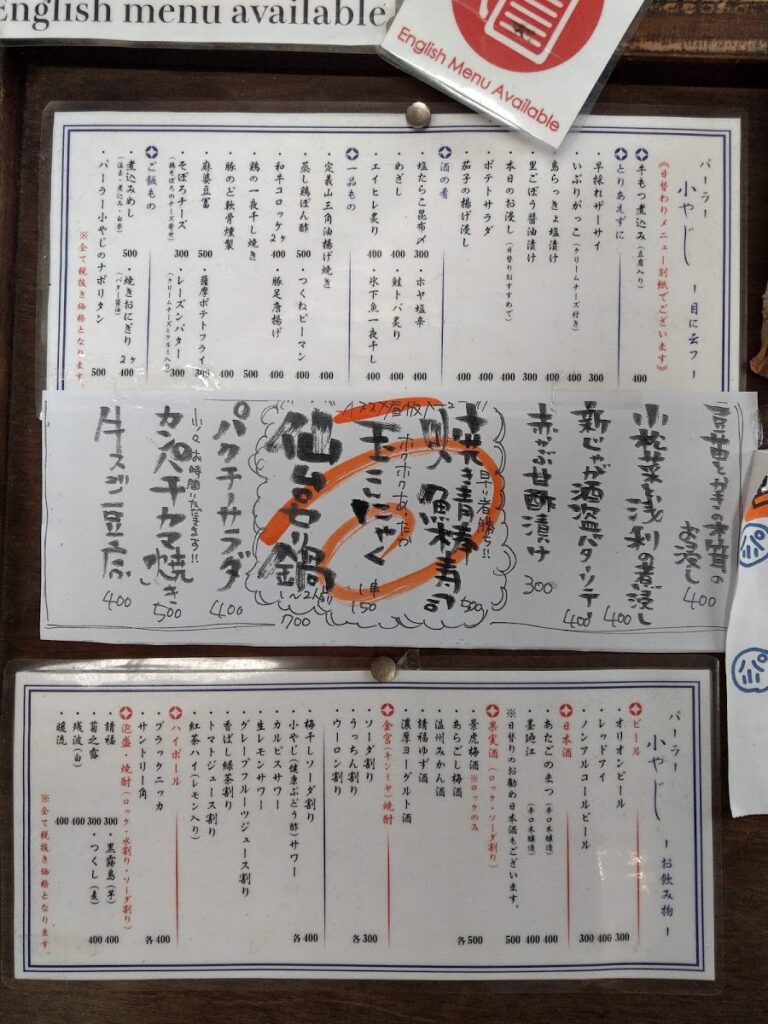 English menu available
English Menu Available
パーラー 小やじ ー目に云フー
《日替わりメニュー別紙でございます》
とりあえずに
・牛もつ煮込み(豆腐入り) 400
・早採れザーサイ 300
・いぶりがっこ(クリームチーズ付き) 400
・島らっきょ塩漬け 400
・里ごぼう醤油漬け 400
・本日のお浸し(日替りおすすめで) 400
・ポテトサラダ 400
・茄子の揚げ浸し 400
酒の肴
・塩たらこ昆布〆 300 ・ホヤ塩辛 400
・めざし 400 ・鮭トバ炙り 400
・エイヒレ炙り 400 ・氷下魚一夜干し 400
一品もの
・定義山三角油揚げ焼き 400
・蒸し鶏ぽん酢 500 ・つくねピーマン 400
・和牛コロッケ2ヶ 400 ・豚足唐揚げ 400
・鶏の一夜干し焼き 500
・豚のど軟骨燻製 400
・麻婆豆冨 500 ・薩摩ポテトフライ 300
・そぼろチーズ(鶏そぼろのチーズ寄せ) 300 ・レーズンバター(クリームチーズとクルミ入り) 300
ご飯もの
・煮込みめし 300 ・焼きおにぎり(バター醤油) 2ヶ 400
・パーラー小やじのナポリタン 500
※全て税抜き価格となります。
お浸し 400
小松菜と浅利の煮浸し 400
新じゃが酒盗バターソテー 400
赤かぶ甘酢漬け 300
早い者勝ち!!
焼き青棒寿司 500
ホクホクあったか
玉こんにゃく 1串 150
仙台セリ鍋 1〜2人前 700
パクチーサラダ 400
少々お時間いただきます!!
カンパチカマ焼き 500
牛スジ豆腐 400
パーラー 小やじ ーお飲み物ー
ビール
・オリオンビール 300
・レッドアイ 400
・ノンアルコールビール 300
日本酒
・あたごのまつ(辛口本醸造) 400
・墨廼江(辛口本醸造) 400
※日替りのお勧め日本酒もございます。 500
果実酒(ロック・ソーダ割り)
・景虎梅酒 ※ロックのみ
・あらごし梅酒
・温州みかん酒
・請福ゆず酒
・濃厚ヨーグルト酒
各500
金宮(キンミヤ)焼酎
・ソーダ割り
・うっちん割り
・ウーロン割り
各300
・梅干しソーダ割り
・小やじ(健康ぶどう酢)サワー
・カルピスサワー
・生レモンサワー
・グレープフルーツジュース割り
・香ばし緑茶割り
・トマトジュース割り
・紅茶ハイ(レモン入り)
各400
ハイボール
・ブラックニッカ
・サントリー角
各400
泡盛・焼酎(ロック・水割り・ソーダ割り)
・請福 300 ・黒霧島(芋) 400
・菊之露 300 ・つくし(麦) 400
・残波(白) 400
・暖流 400
※全て税抜き価格となります